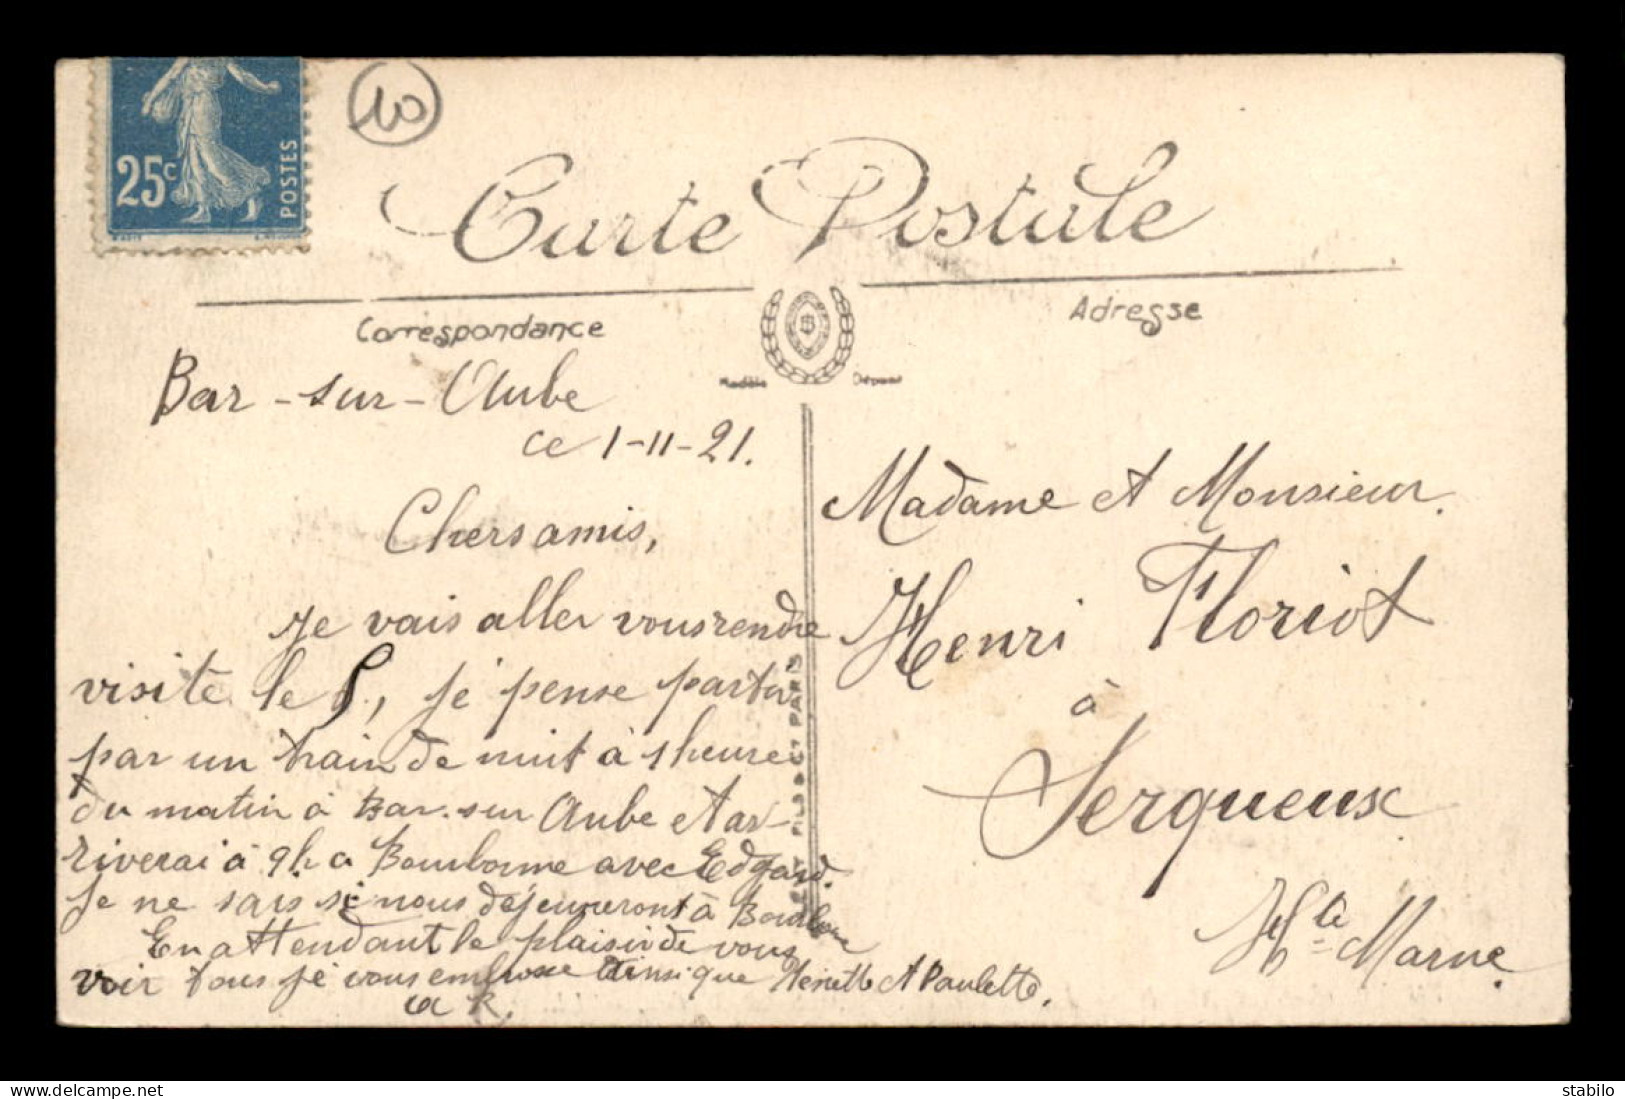 10
25c
POSTES
Carte Postale
Correspondance
Adresse
Modèle Déposé
Bar-sur-Aube
ce 1-11-21.
Chers amis,
Je vais aller vous rendre
visite le 5, je pense partir
par un train de nuit à 1 heure
du matin à Bar-sur Aube et ar-
riverai à 9h a Bourbonne avec Edgard.
Je ne sais si nous déjeuneront à Bourbonne
En attendant le plaisir de vous
voir tous je vous embrasse ainsi que et Paulette.
R.
FILS & Cie PARIS
Madame et Monsieur.
Henri Floriot
à
Serqueux
Hte Marne.
stabilo